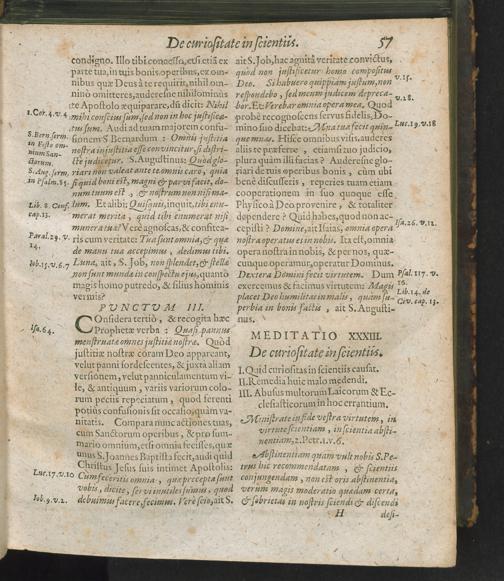 De curiositate in scientiis. 57
condigno. Illo tibi concesso, etsi etiā ex
parte tua, in tuis bonis operibus, ex om-
nibus quæ Deus à te requirit, nihil om-
nino omitteres, auderesne nihilominus
te Apostolo æquiparare, dū dicit: Nihil
1.Cor.4.v.4 mihi conscius sum, sed non in hoc justifica-
tus sum. Audi ad tuam majorem confu-
S. Bern. serm. sionem S Bernardum: Omnis justitia
in Festo om- nostra injustitia esse convincitur, si distri-
nium San- ctè judicetur. S. Augustinus: Quod glo-
ctorum.
S. Aug. serm. riari non valeat ante te omnis caro, quia
in Psalm. 85. si quid boni est, magni & parvi facit, do-
num tuum est, & nostrum non nisi ma-
Lib. 8. Conf. lum. Et alibi; Quisquis, inquit, tibi enu-
cap.13. merat merita, quid tibi enumerat nisi
munera tua? Verè agnoscas, & confitea-
Paral.29. v. ris cum veritate: Tua sunt omnia, & quæ
14. de manu tua accepimus, dedimus tibi.
Job.25.v.6.7 Luna, ait, S. Job, non splendet, & stellæ
non sunt munda in conspectu ejus, quanto
magis homo putredo, & filius hominis
vermis?
PUNCTUM III.
Isa.64. Considera tertiò, & recogita hæc
Prophetæ verba: Quasi pannus
menstruatæ omnes justitiæ nostræ. Quòd
justitiæ nostræ coram Deo appareant,
velut panni sordescentes, & juxta aliam
versionem, velut panniculamentum vi-
le, & antiquum, variis variorum colo-
rum peciis repeciatum, quod ferenti
potiùs confusionis sit occasio, quàm va-
nitatis. Compara nunc actiones tuas,
cum Sanctorum operibus, & pro sum-
mario omnium, etsi omnia fecisses, quæ
unus S. Joannes Baptista fecit, audi quid
Christus Jesus suis intimet Apostolis:
Luc.17.v.10 Cùm feceritis omnia, quæ præcepta sunt
vobis, dicite, servi inutiles sumus, quod
Job.9.v.2. debuimus facere, fecimus. Verè scio, ait S.
ait S. Job, hac agnitâ veritate convictus,
quòd non justificetur homo compositus
Deo. Si habuero quippiam justum, non v.15.
respondebo, sed meum judicem depreca-
bor. Et Verebar omnia opera mea. Quod v.28.
probè recognoscens servus fidelis, Do-
mino suo dicebat: Mna tua fecit quin- Luc.19.v.18
que mnas. Hisce omnibus visis, auderes
alicui te præferre, etiamsi tuo judicio,
plura quàm illi facias? Auderesne glo-
riari de tuis operibus bonis, cùm ubi
benè discusseris, reperies tuam etiam
cooperationem in suo quoque esse
Physico à Deo provenire, & totaliter
dependere? Quid habes, quod non ac-
cepisti? Domine, ait Isaias, omnia opera Isa.26.v.12.
nostra operatus es in nobis. Ita est, omnia
opera nostra in nobis, & per nos, quæ-
cunque operamur, operatur Dominus.
Dextera Domini fecit virtutem. Dum Psal.117. v.
exercemus & facimus virtutem: Magis 16.
placet Deo humilitas in malis, quàm su- Lib.14. de
perbia in bonis factis, ait S. Augusti- Civ. cap. 13.
nus.
MEDITATIO XXXIII.
De curiositate in scientiis.
I. Quid curiositas in scientiis causat.
II. Remedia huic malo medendi.
III. Abusus multorum Laicorum & Ec-
clesiasticorum in hoc errantium.
Ministrate in fide vestra virtutem, in
virtute scientiam, in scientia absti-
nentiam, 2. Petr.1.v.6.
Abstinentiam quam vult nobis S. Pe-
trus hic recommendatam, & scientiis
conjungendam, non est oris abstinentia,
verùm magis moderatio quædam certa,
& sobrietas in nostris sciendi & discendi
H desi-